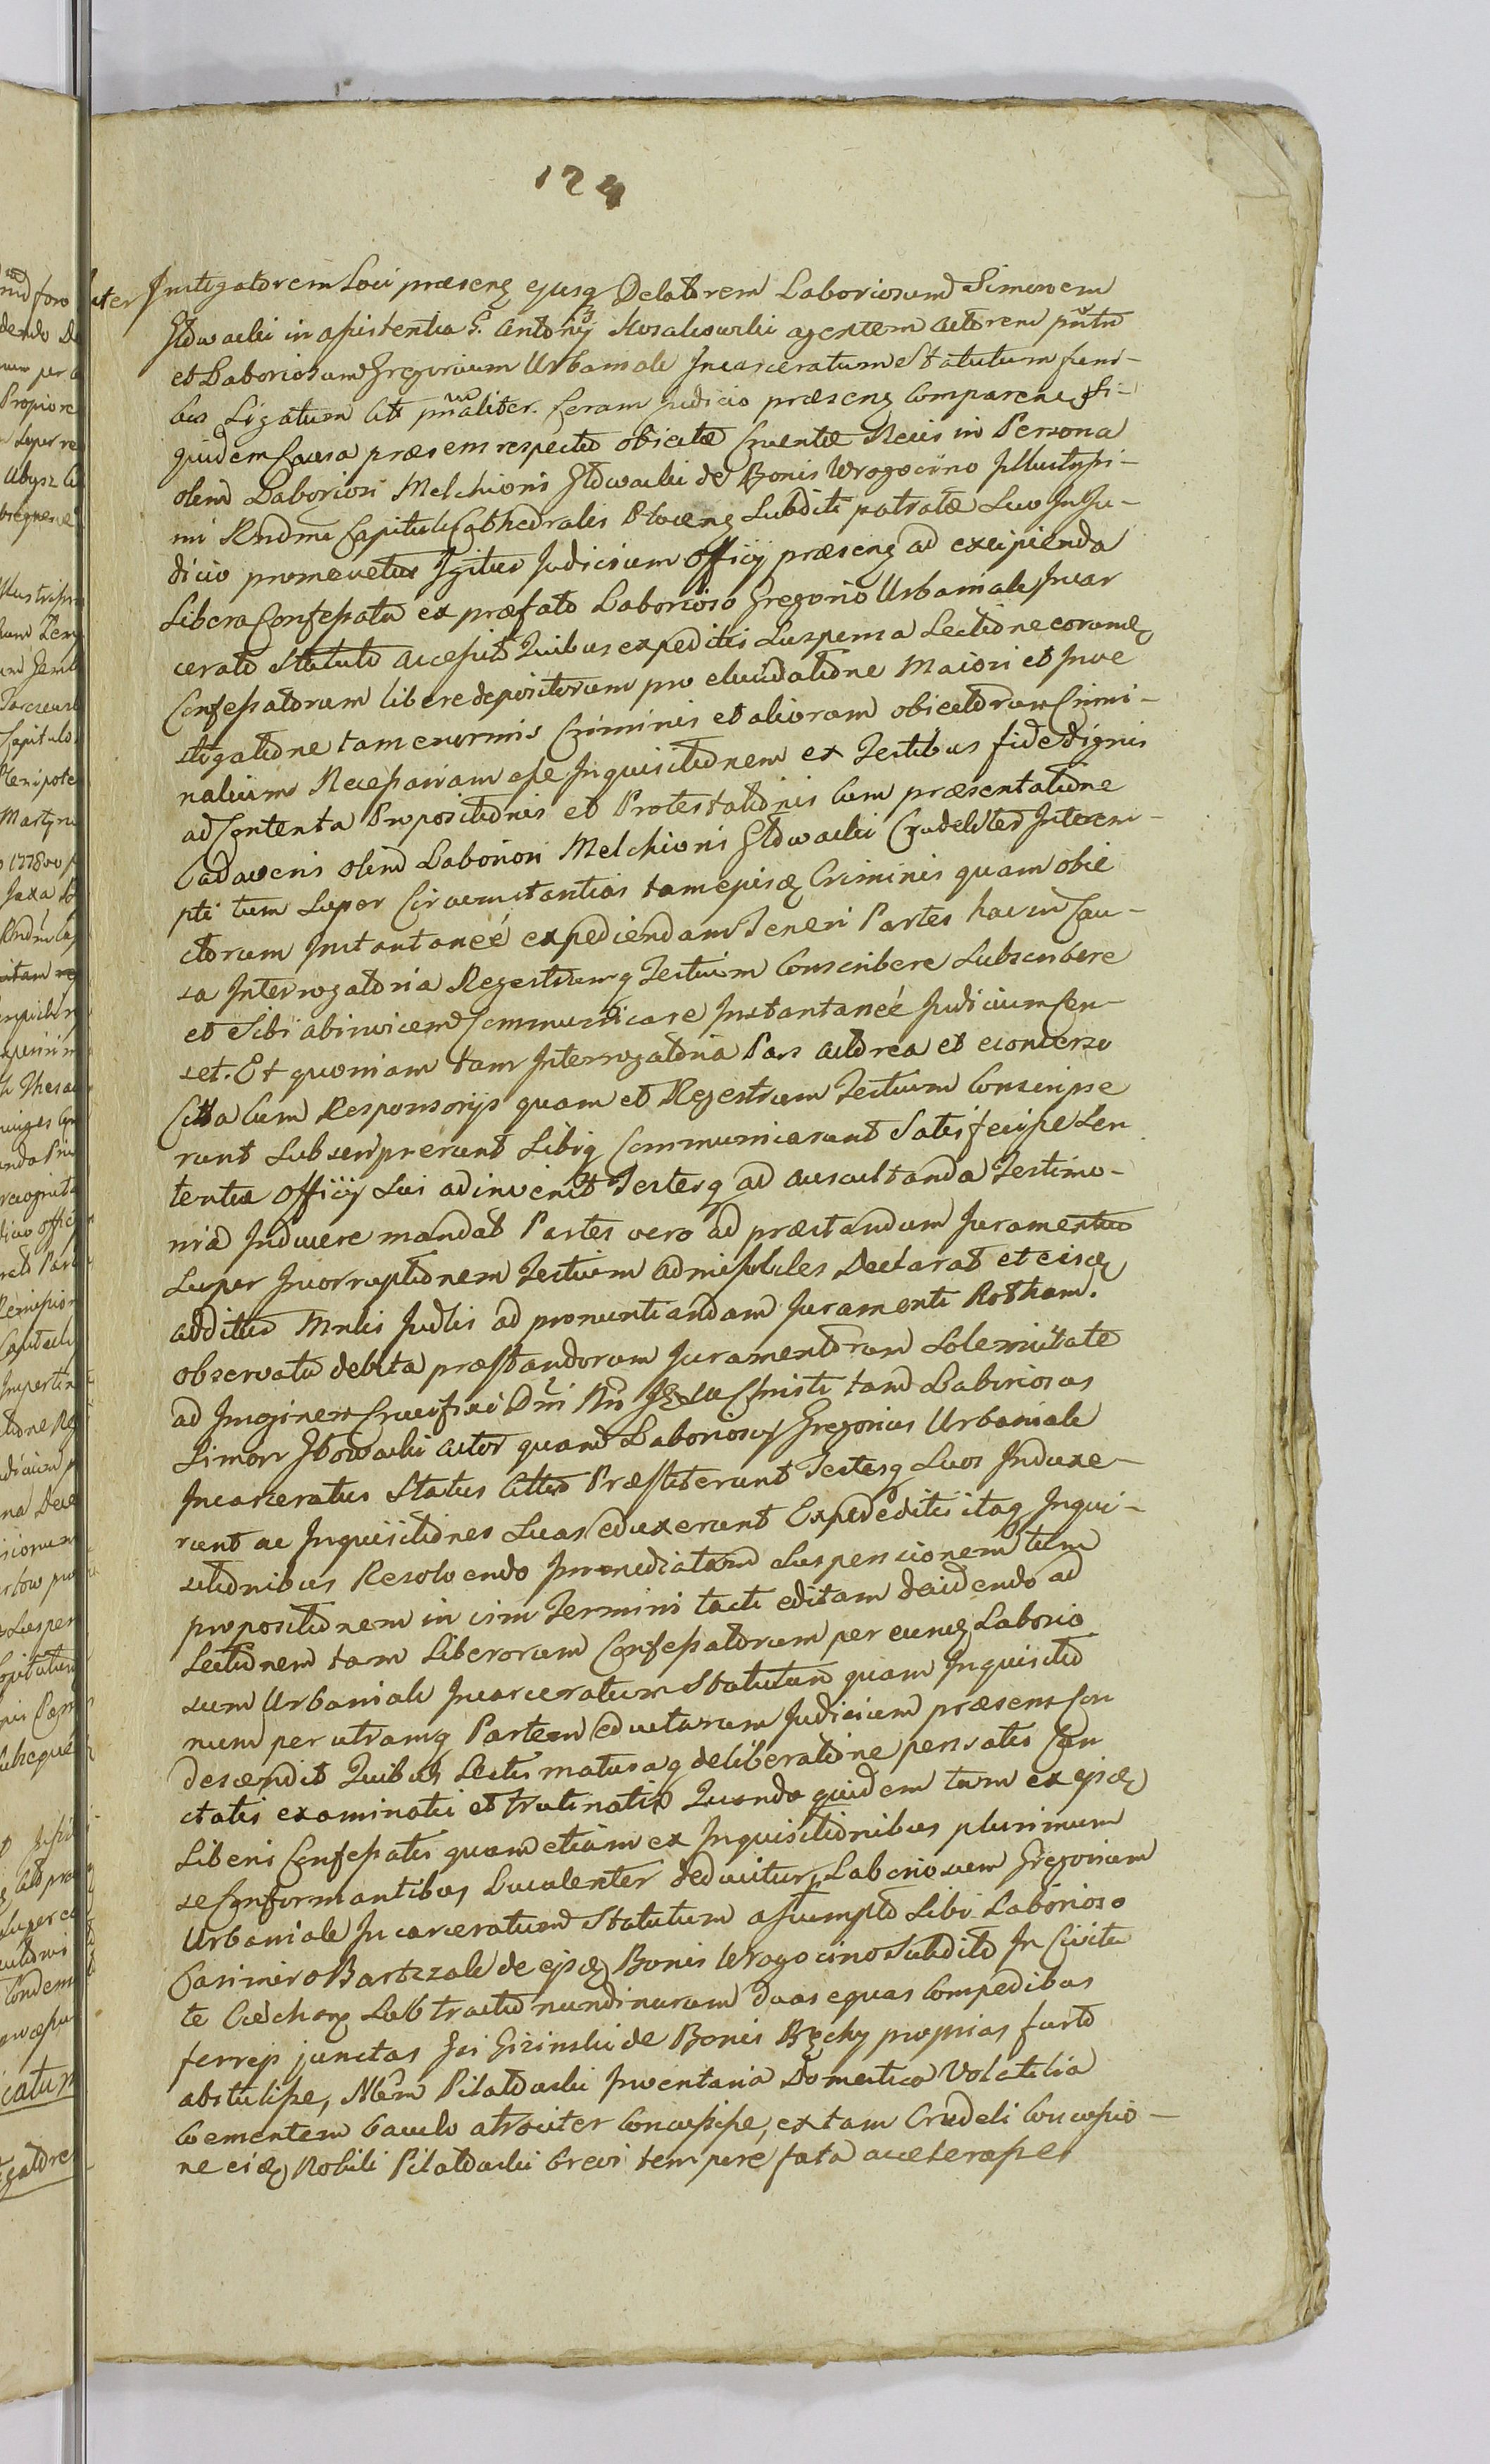 124
Inter Instigatorem Loci præsenq ejusq Delatorem Laboriosum Simonem
Głowacki in assistentia G. Antonij Kosakowski agentem Actorem pñtem
et Laboriosum Gregorium Urbaniak Incarceratum Statutum funi-
bus Ligatum Citt pñaliter. Coram Judicio præsenq Comparene Si-
quidem Causa præsens respectu obiectæ Cruentæ Necis in Persona
olim Laboriosi Melchioris Głowacki de Bonis Wrogocino Illustrissi-
mi Rndmi Capituli Cathedralis Plocenq Subditi patratæ Suo In Ju-
dicio promovetur Igitur Judicium Officij præsenq ad excipienda
Libera Confessata ex præfato Laborioso Gregorio Urbaniak Incar
cerato Statuto accessit Quibus expeditis Suspensa Lectione eorumq
Confessatorum libere depositorum pro elucidatione Maiori et Inve
stigatione tam enormis Criminis et aliorum obiectorum Crimi-
nalium Necessariam esse Inquisitionem ex Testibus fide dignis
ad Contenta Propositionis et Protestationis Cum præsentatione
Cadaveris olim Laboriosi Melchioris Głowacki Crudeliter Interem-
pti tum Super Circumstantias tam ejusq Criminis quam obie
ctorum Instantaneé expediendam Teneri Partes hac in Cau-
sa Interrogatoria Regestrumq Testium Conscribere Subscribere
et Sibi abinvicem Communicare Instantaneé Judicium Cen-
set. Et quoniam tam Interrogatoria Pars Actorea et econverso
Citta Cum Responsorijs quam et Regestrum Testium Conscripse
runt Subscripserunt Sibiq Communicarunt Satisfecisse Sen
tentiæ Officij Sui adinvenit Testesq ad auscultanda Testimo-
nia Inducere mandat Partes vero ad præstandum Juramentum
Super Incorruptionem Testium admissibiles Declarat et eisq
additur Mnlis Judlis ad pronuntiandam Juramenti Rotham.
Observata debita præstandorum Juramentorum Solemnitate
ad Imaginem Crucifixi Dñi Nri Jesu Christi tam Laboriosus
Simon Głowacki Actor quam Laboriosus Gregorius Urbaniak
Incarceratus Status Cittus Præstiterunt Testesq Suos Induxe-
runt ac Inquisitiones Suas eduxerunt Expededitis itaq Inqui-
sitionibus Resolvendo Immediatam Suspensionem tum
propositionem in vim Termini tacti editam decidendo ad
Lectionem tam Liberorum Confessatorum per eumq Laborio
sum Urbaniak Incarceratum Statutum quam Inquisitio
num per utramq Partem eductarum Judicium præsens Con
descendit Quibus Lectis maturaq deliberatione pensatis Cun
ctatis examinatis et trutinatis Quando quidem tum ex ejsq
Liberis Confessatis quam etiam ex Inquisitionibus plurimum
se Conformantibus Luculenter deducitur, Laboriosum Gregorium
Urbaniak Incarceratum Statutum assumpto Sibi Laborioso
Casimiro Bartczak de ejsq Bonis Wrogocino Subdito In Civita
te Ciechan Sub tractu nundinarum duas equas Compedibus
ferreis junctas Gsi Gizinski de Bonis Bęchy proprias furto
abstulisse, Nblm Pilatowski Inventaria Domestica Volatilia
Coementem baculo atrociter Concussisse, ex tam Crudeli Concussio-
ne eisq Nobili Pilatowski brevi tempore fata accelerasse